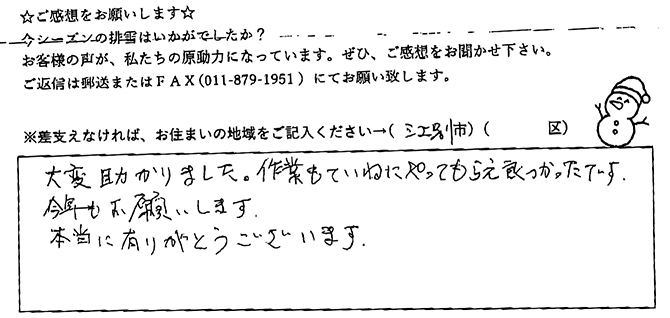 ☆ご感想をお願いします☆
今シーズンの排雪はいかがでしたか？
お客様の声が、私たちの原動力になっています。ぜひ、ご感想をお聞かせ下さい。
ご返信は郵送またはＦＡＸ(011-879-1951）にてお願い致します。
※差支えなければ、お住まいの地域をご記入ください→( 江別市）(　　　区）
大変助かりました。作業もていねいにやってもらえ良かったです.
今年もお願いします.
本当に有りがとうございます.